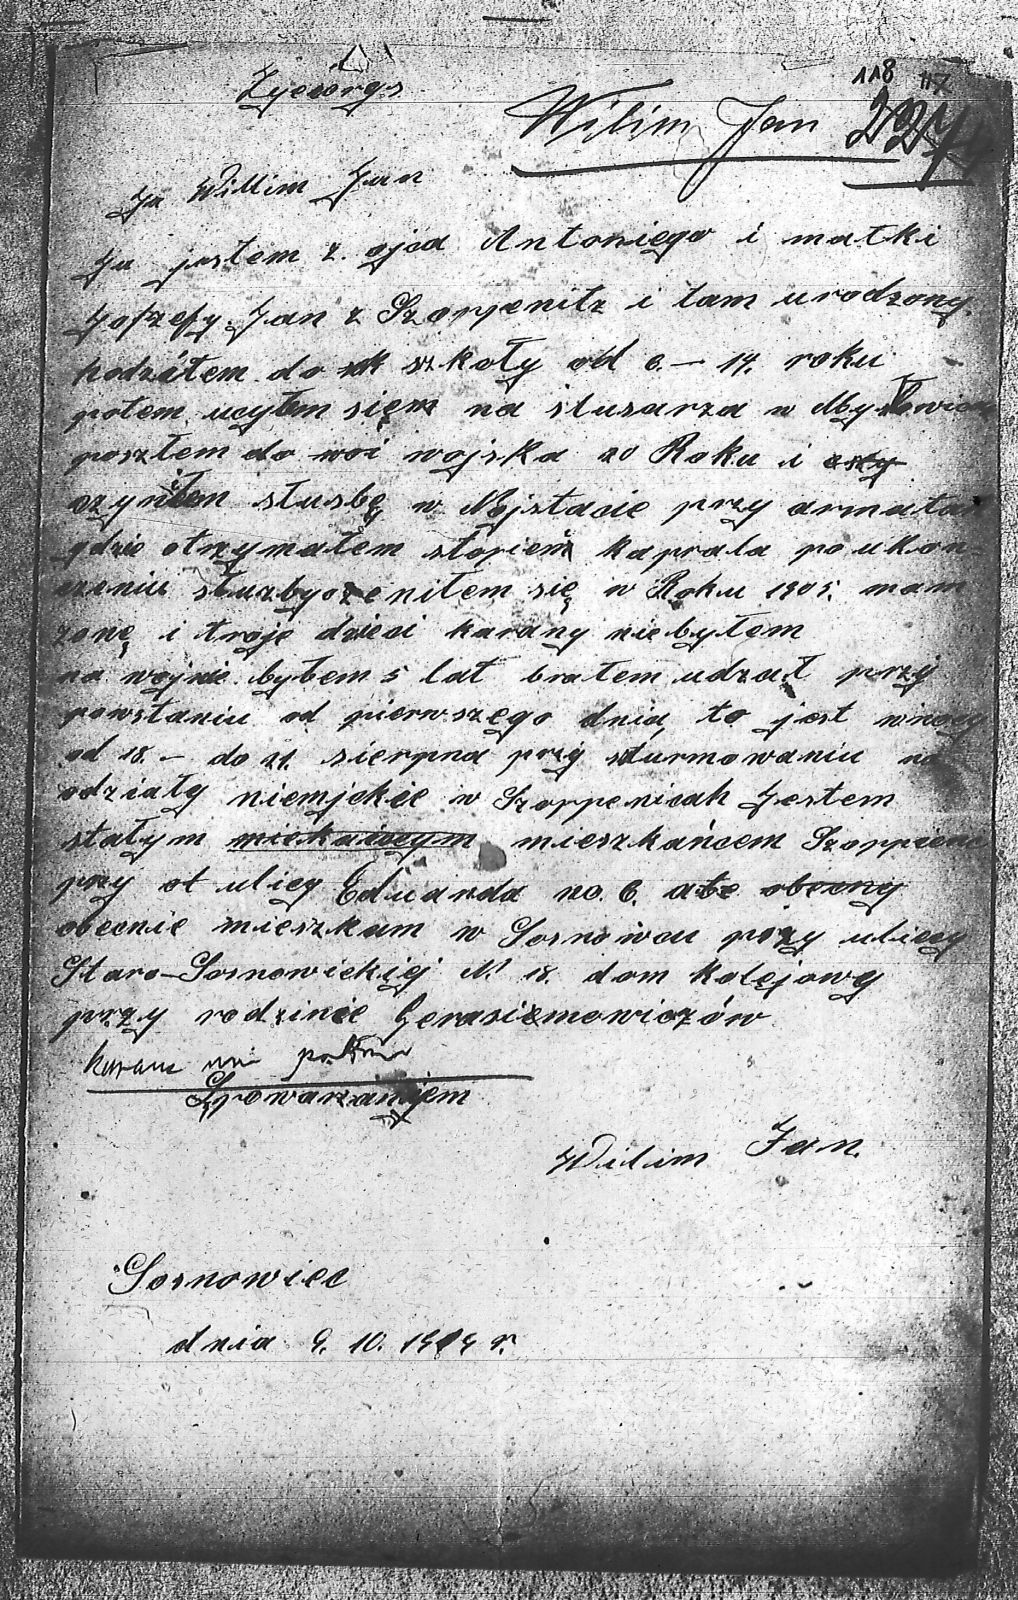 118
Życiorys
Wilim Jan
Ja Willim Jan
Ja jestem z. ojca Antoniego i matki
Jofzefy. Jan z Szoppenitz i tam urodzony.
hodzółem do szkoły od 6. – 14. roku
potem ucyłem sięm na slusarza w Mysłowicach
poszłem do woi wojska 20 Roku i
czyniłem słusbę w Nejstacie przy armatach
gdzie otrzymałem stopień kaprala po ukon
czeniu służby ożeniłem się w Roku 1905. mam
żonę i troje dzieci karany niebyłem
na wojnie byłem 5 lat brałem udzał przy
powstaniu od pierwszego dnia, to jest wnocy
od 18. – do 21. sierpna przy sturmowaniu na
odziały niemjckie w Szoppenicah Jestem
stałym mieszkańcem Szoppienic
przy ulicy Eduarda no. 6. ale obecny
obecnie mieszkam w Sosnowcu przy ulicy
Staro-Sosnowickiej № 18. dom kolejowy
przy rodzinie Gerasiemowiczów
Spowarzaniem
Wilim Jan.
Sosnowiec
dnia 9. 10. 1919 r.